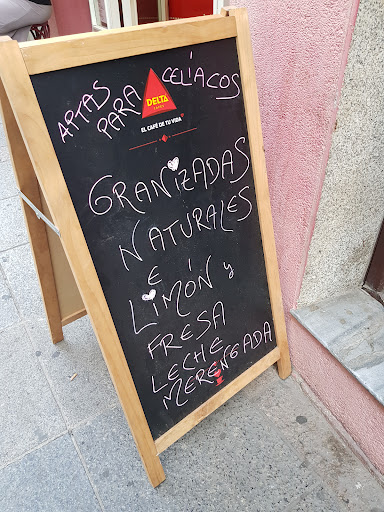 APTAS PARA CELÍACOS
DELTA
CAFÉS
EL CAFÉ DE TU VIDA
GRANIZADAS
NATURALES
E
LIMÓN y
FRESA
LECHE
MERENGADA